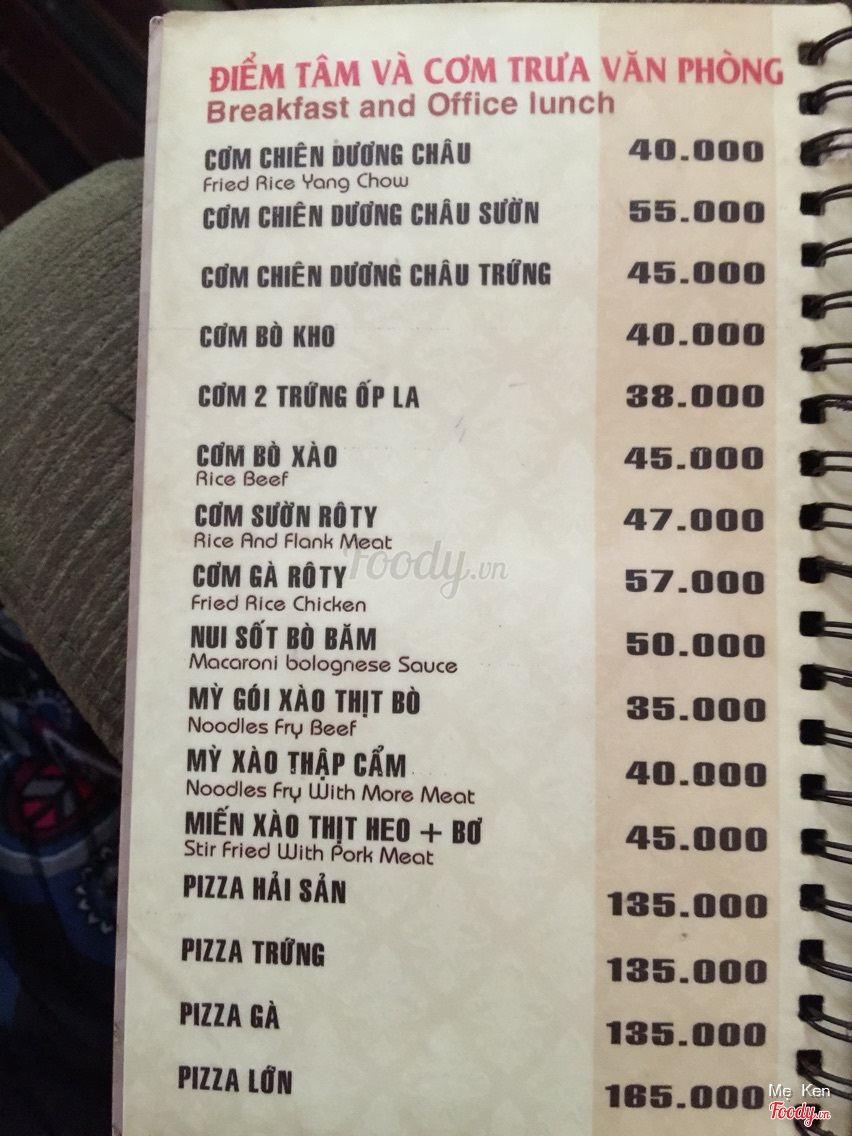 ĐIỂM TÂM VÀ CƠM TRƯA VĂN PHÒNG
Breakfast and Office lunch
CƠM CHIÊN DƯƠNG CHÂU 40.000
Fried Rice Yang Chow
CƠM CHIÊN DƯƠNG CHÂU SƯỜN 55.000
CƠM CHIÊN DƯƠNG CHÂU TRỨNG 45.000
CƠM BÒ KHO 40.000
CƠM 2 TRỨNG ỐP LA 38.000
CƠM BÒ XÀO 45.000
Rice Beef
CƠM SƯỜN RÔTY 47.000
Rice And Flank Meat
Foody.vn
CƠM GÀ RÔTY 57.000
Fried Rice Chicken
NUI SỐT BÒ BĂM 50.000
Macaroni bolognese Sauce
MỲ GÓI XÀO THỊT BÒ 35.000
Noodles Fry Beef
MỲ XÀO THẬP CẨM 40.000
Noodles Fry With More Meat
MIẾN XÀO THỊT HEO + BƠ 45.000
Stir Fried With Pork Meat
PIZZA HẢI SẢN 135.000
PIZZA TRỨNG 135.000
PIZZA GÀ 135.000
PIZZA LỚN 165.000
Mẹ Ken
Foody.vn